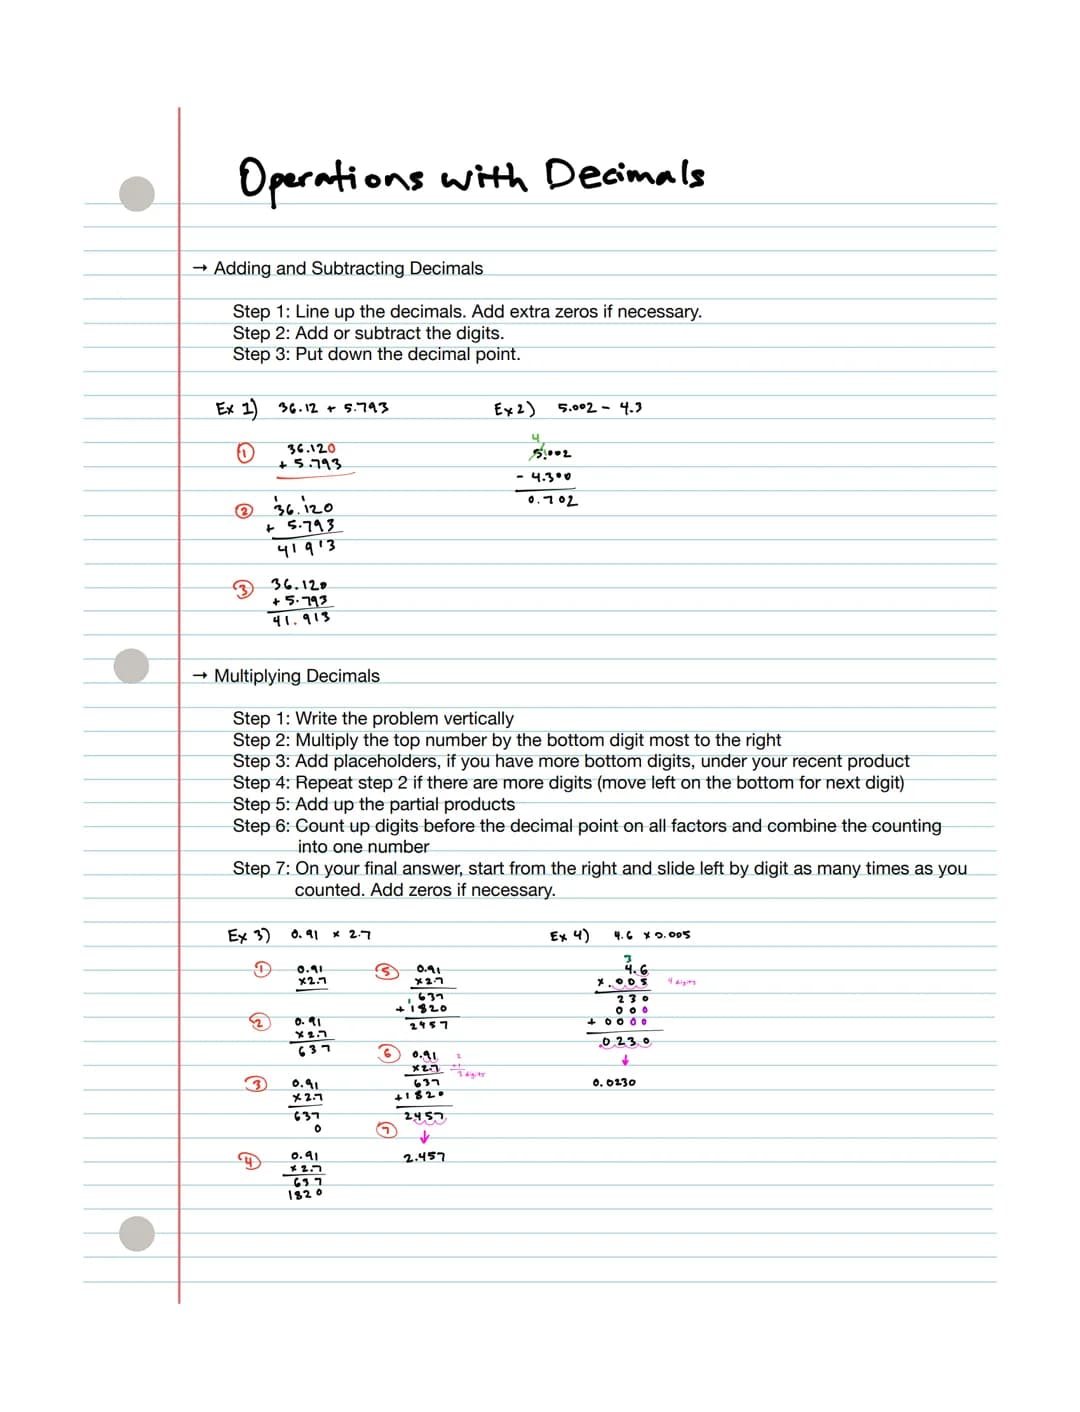 Operations with Decimals
→ Adding and Subtracting Decimals
Step 1: Line up the decimals. Add extra zeros if necessary.
Step 2: Add or subtract the digits.
Step 3: Put down the decimal point.
Ex 1) 36.12 + 5.793
① 36.120
+ 5.793
② 1 1
36.120
+ 5.793
41 913
③ 36.120
+ 5.793
41.913
Ex 2) 5.002 - 4.3
4 1
5.002
- 4.300
0.702
→ Multiplying Decimals
Step 1: Write the problem vertically
Step 2: Multiply the top number by the bottom digit most to the right
Step 3: Add placeholders, if you have more bottom digits, under your recent product
Step 4: Repeat step 2 if there are more digits (move left on the bottom for next digit)
Step 5: Add up the partial products
Step 6: Count up digits before the decimal point on all factors and combine the counting
into one number
Step 7: On your final answer, start from the right and slide left by digit as many times as you
counted. Add zeros if necessary.
Ex 3) 0.91 × 2.7
① 0.91
×2.7
② 0.91
×2.7
637
③ 0.91
×2.7
637
0
④ 0.91
×2.7
637
1820
⑤ 0.91
×2.7
1
637
+1820
2457
⑥ 0.91 2
×2.7 +1
637 3 digits
+1820
2457
⑦ ↓
2.457
Ex 4) 4.6 × 0.005
3
4.6
×.005 4 digits
230
000
+ 0000
.0230
↓
0.0230